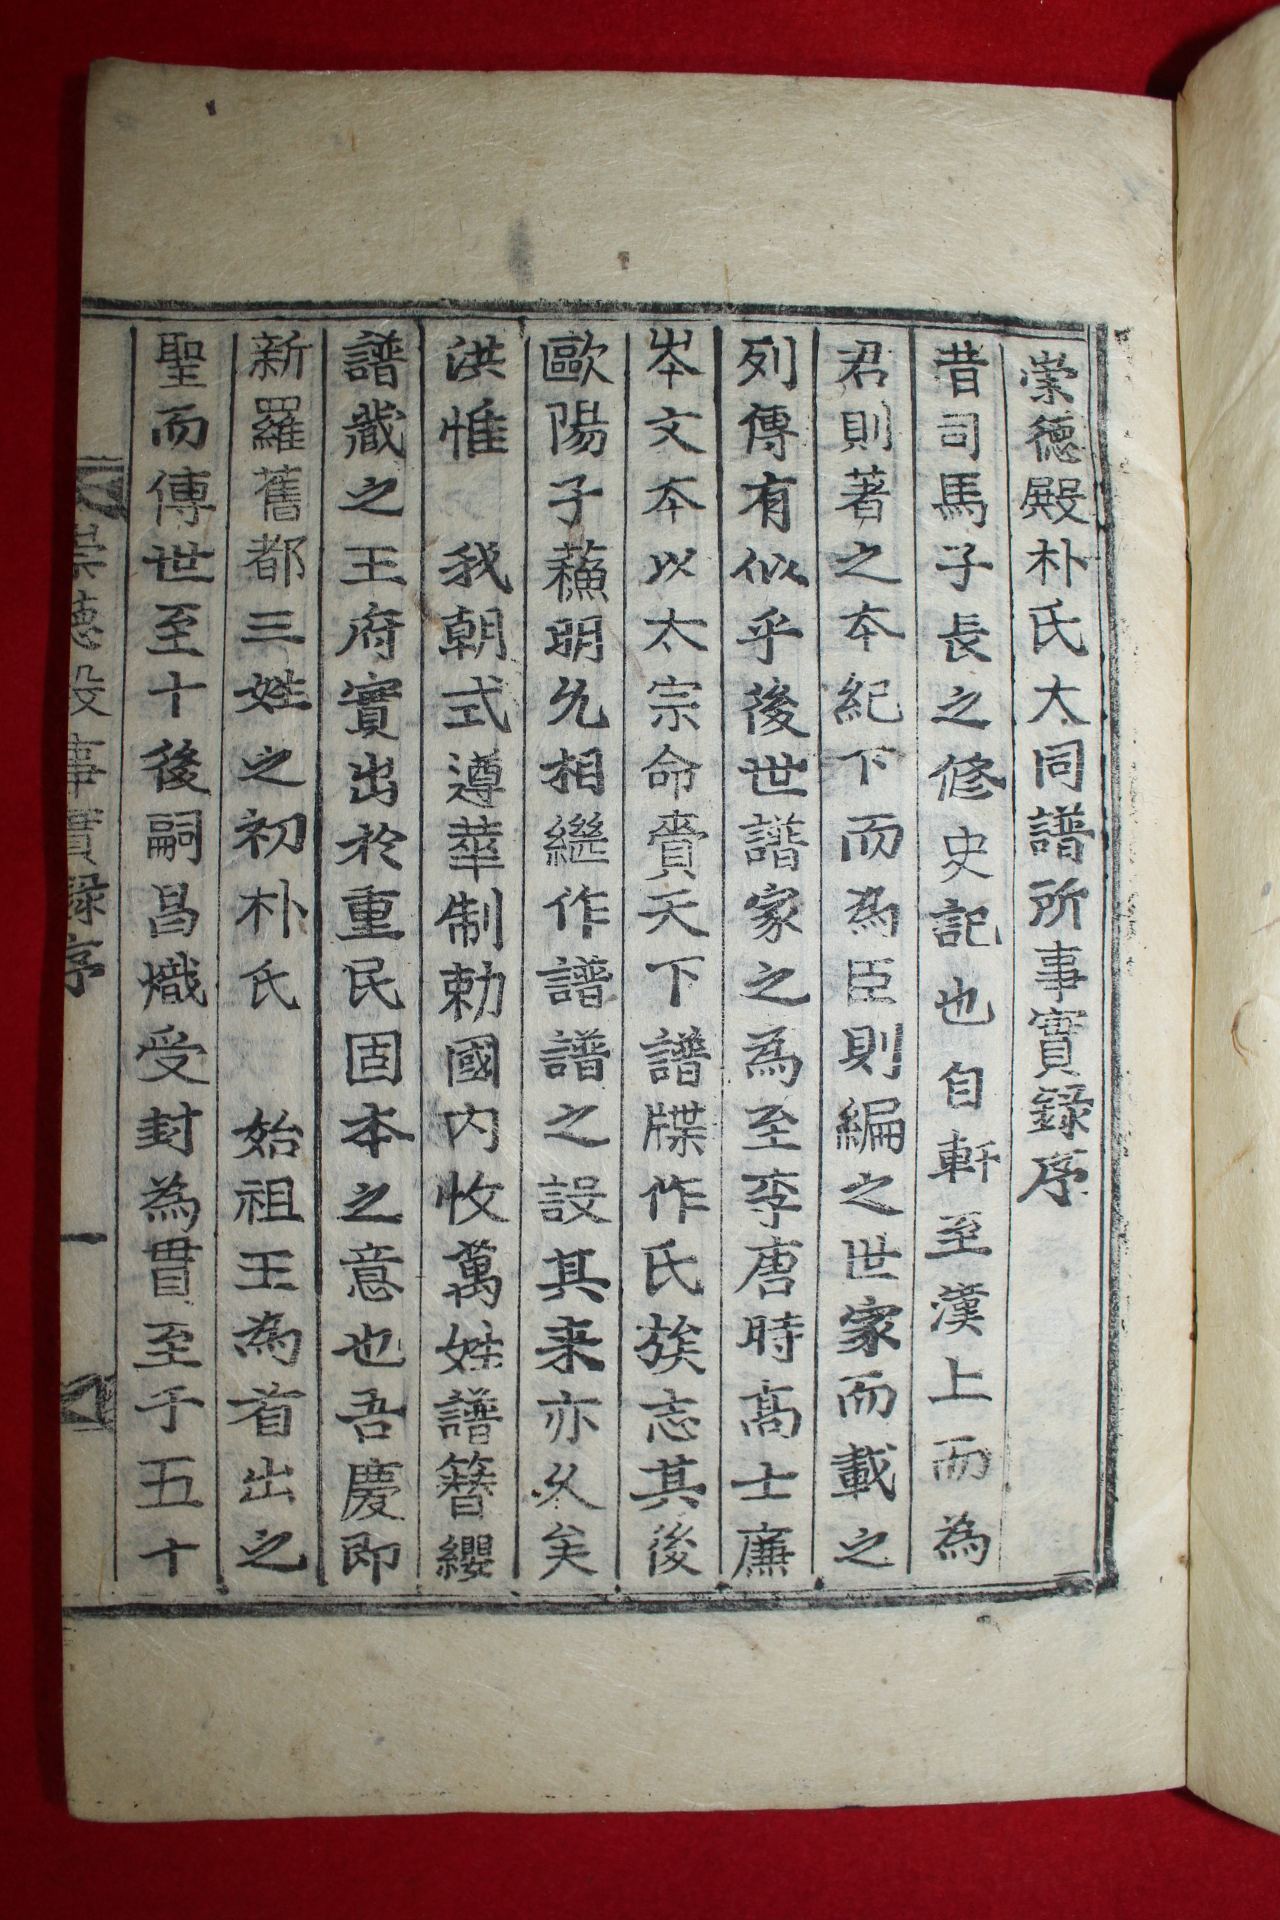 崇德殿朴氏大同譜所事實錄序
昔司馬子長之修史記也自軒至漢上而為
君則著之本紀下而為臣則編之世家而載之
列傳有似乎後世譜家之為至李唐時高士廉
岑文本以太宗命賚天下譜牒作氏族志其後
歐陽子蘓明允相繼作譜譜之設其来亦久矣
洪惟 我朝式遵華制勅國內收萬姓譜簪纓
譜藏之王府實出於重民固本之意也吾慶即
新羅舊都三姓之初朴氏 始祖王為首出之
聖而傳世至十後嗣昌熾受封為貫至于五十
崇德殿事實錄序 一